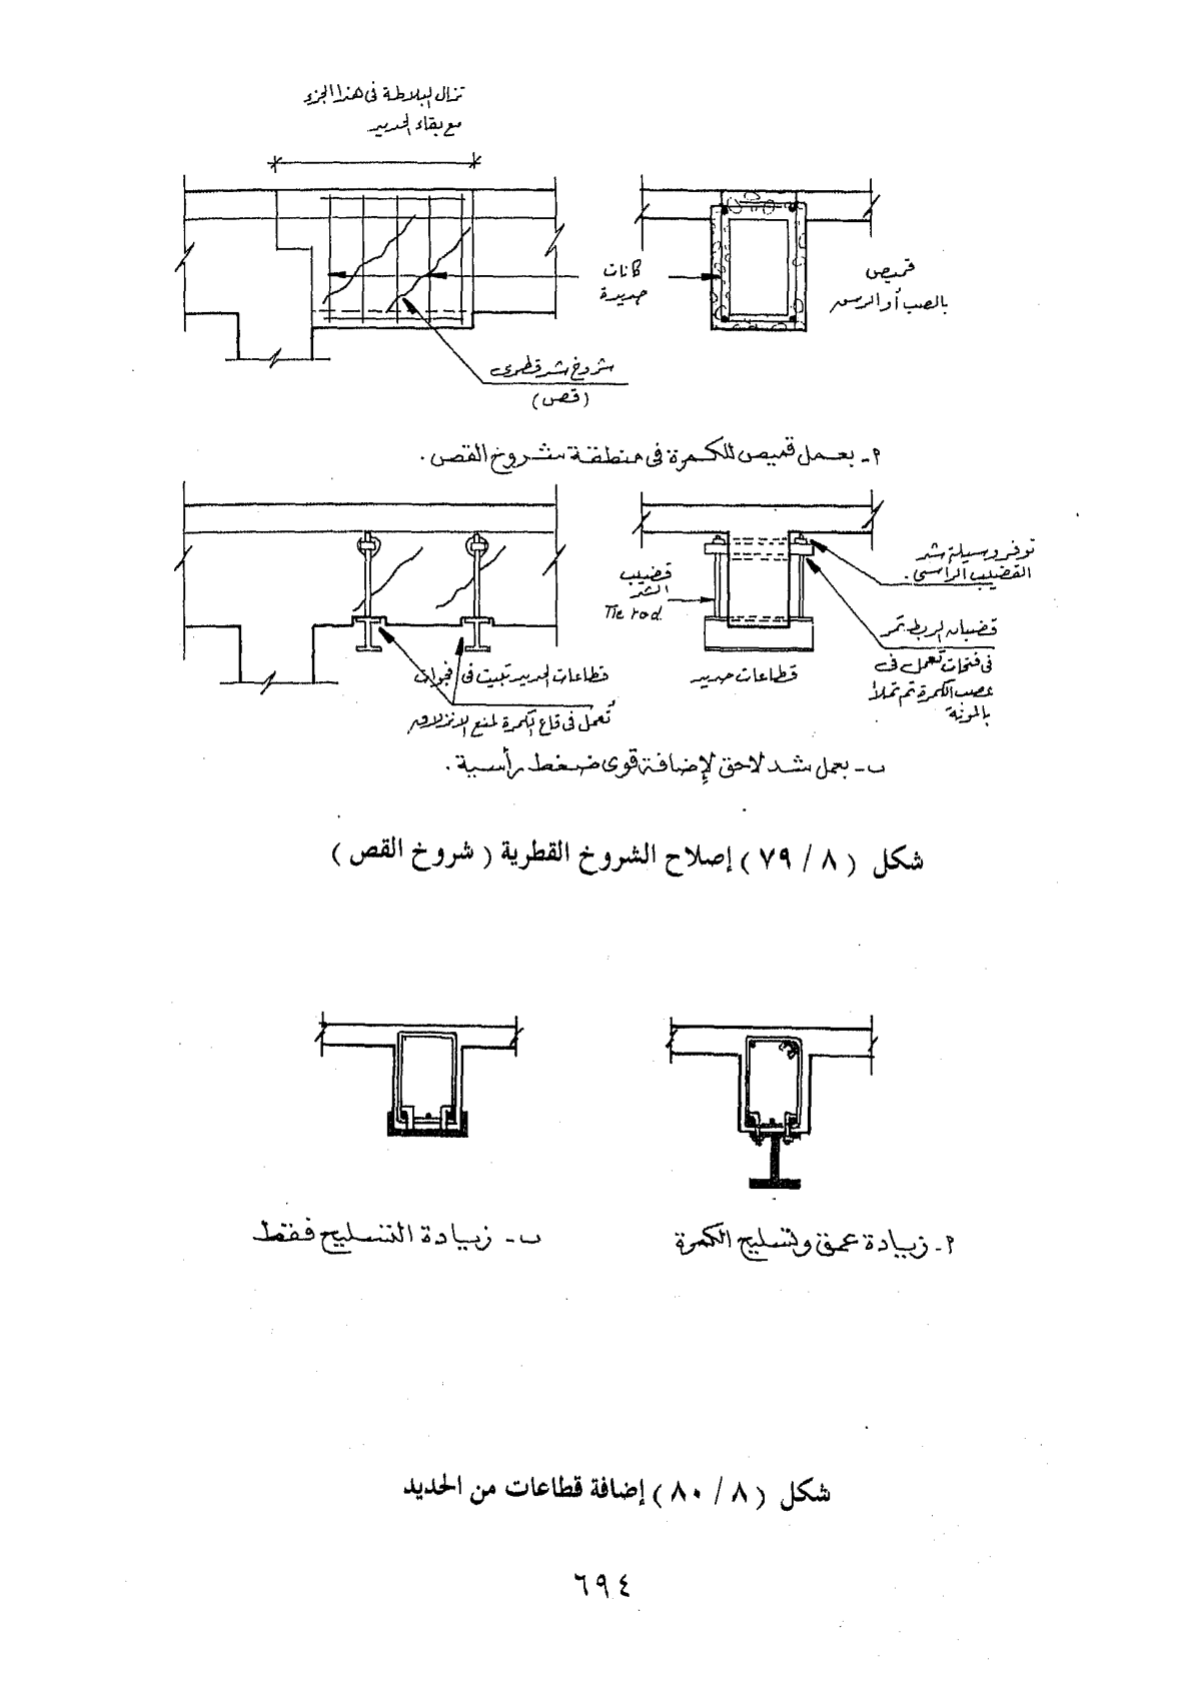 تزال البلاطة فى هذا الجزء
مع بقاء الحديد
كانات
جديدة
قميص
بالصب أو الرش
شروخ شد قطرى
(قص)
م- بعمل قميص للكمرة فى منطقة شروخ القص .
توفر وسيلة شد
القضيب الرأسى .
قضيب
الشد
Tie rod
قضبان الربط تمر
فى فتحات تعمل فى
عصب الكمرة ثم تملأ
بالمونة
قطاعات حديد
قطاعات الحديد تثبت فى فجوات
تُعمل فى قاع الكمرة لمنع الانزلاق
ب- بعمل شد لاحق لإضافة قوى ضغط رأسية .
شكل ( ٨ / ٧٩ ) إصلاح الشروخ القطرية ( شروخ القص )
م- زيادة عمق وتسليح الكمرة
ب- زيادة التسليح فقط
شكل ( ٨ / ٨٠ ) إضافة قطاعات من الحديد
٦٩٤